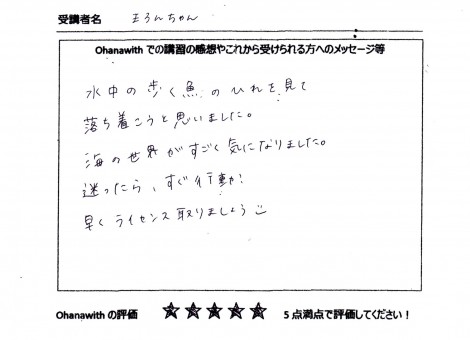 受講者名 まろんちゃん
Ohanawith での講習の感想やこれから受けられる方へのメッセージ等
水中の歩く魚のひれを見て
落ち着こうと思いました。
海の世界がすごく気になりました。
迷ったら、すぐ行動!
早くライセンス取りましょう
Ohanawith の評価 ☆☆☆☆☆ 5 点満点で評価してください！